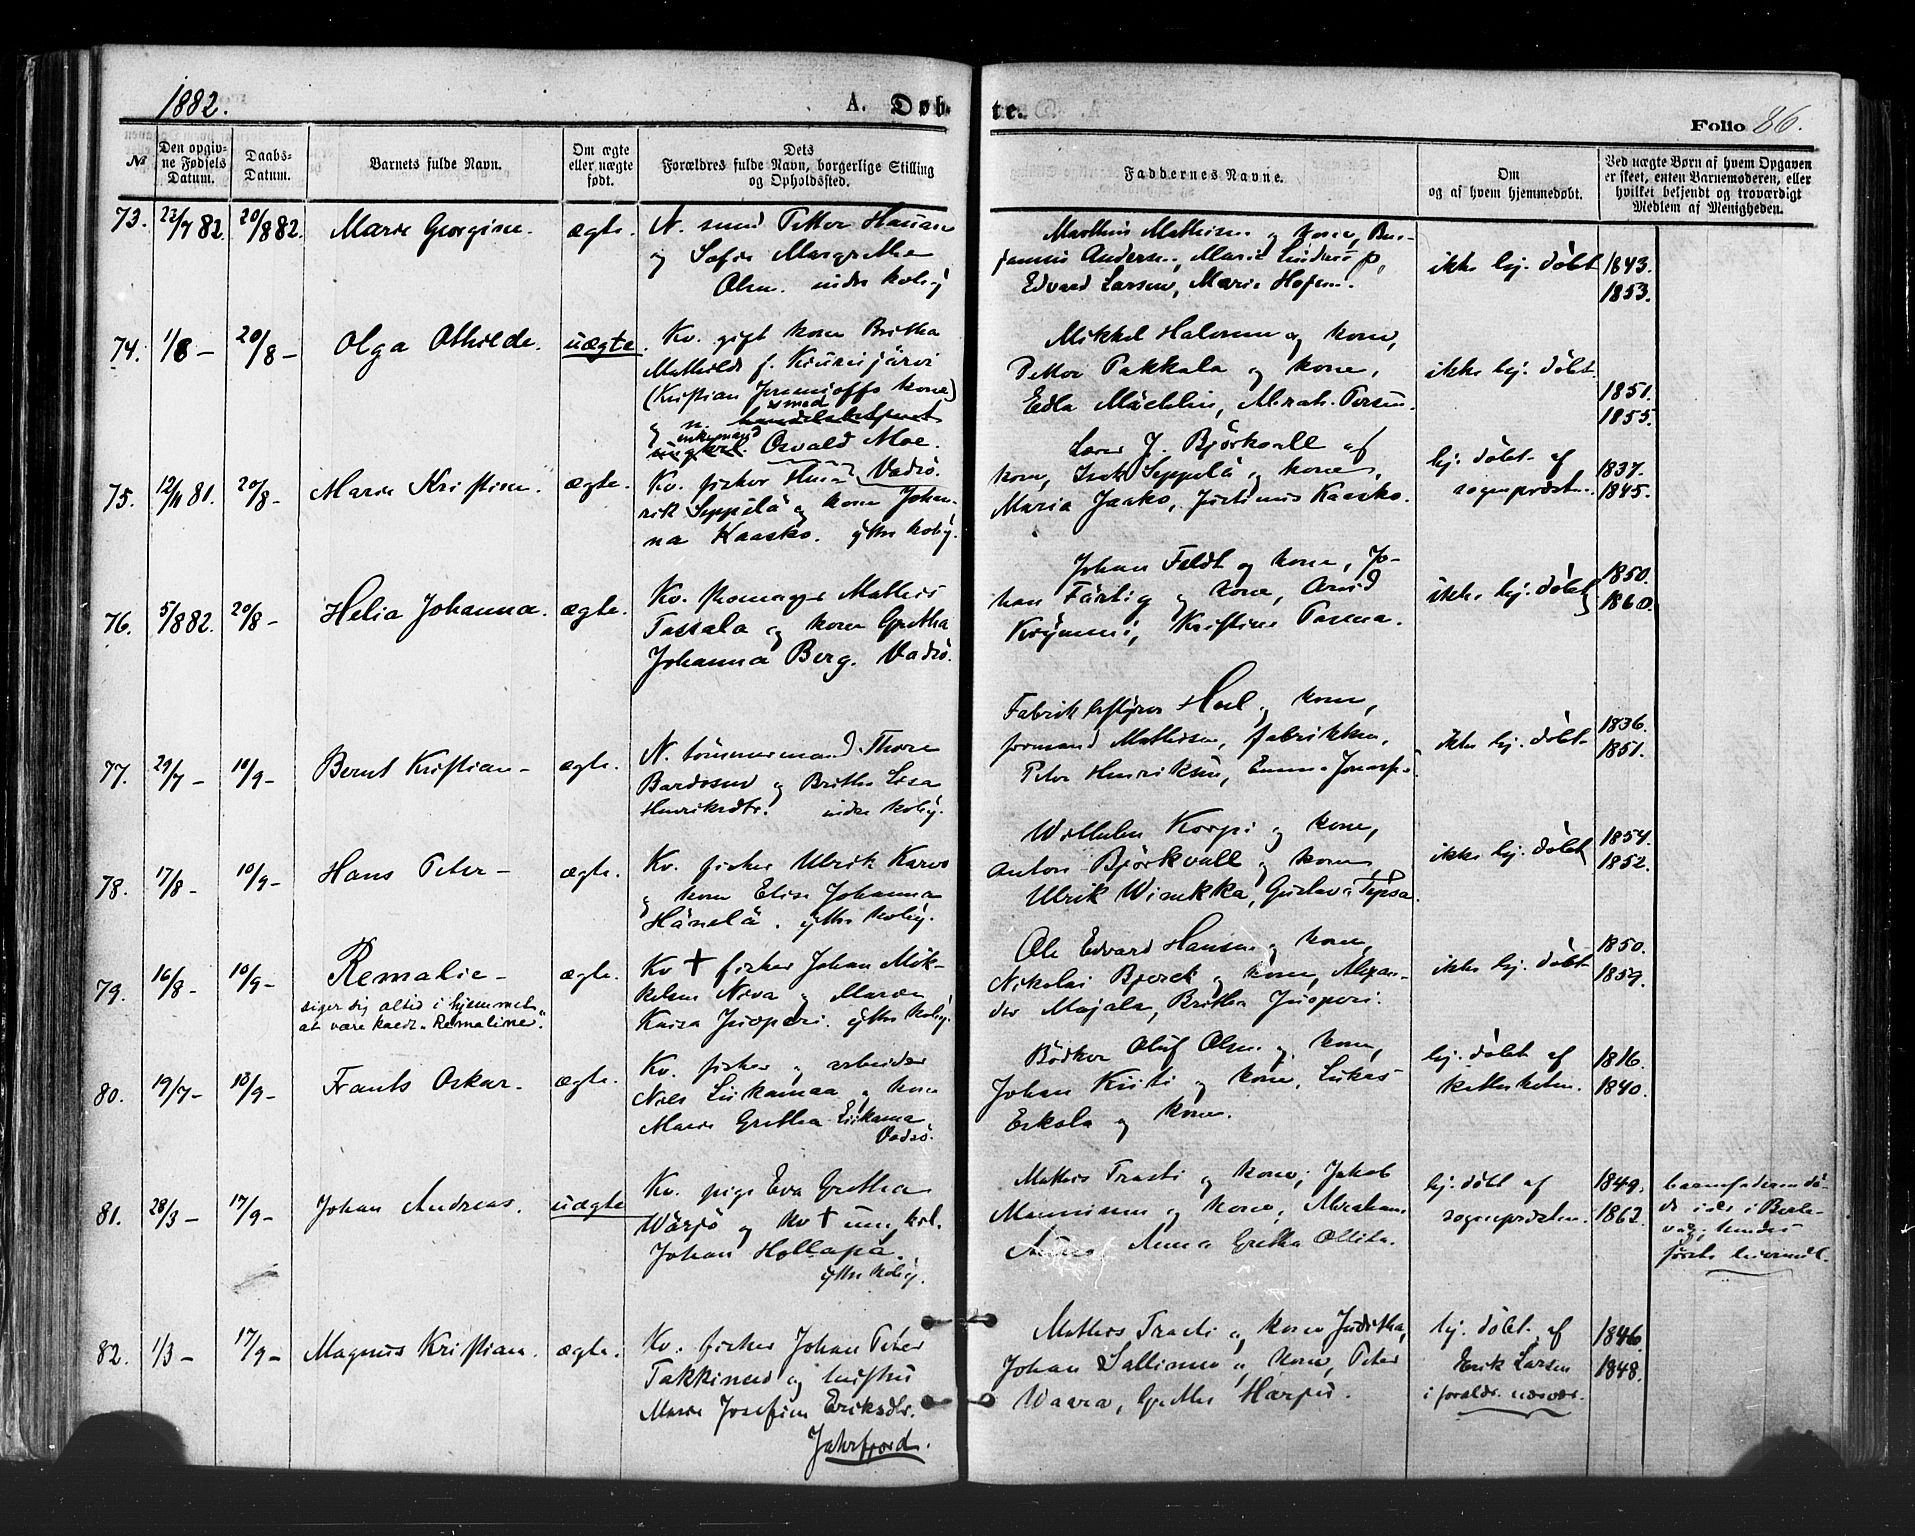 1882.
A. Døbte.
Folio 86.
№
Den opgivne Fødsels Datum.
Daabs-Datum.
Barnets fulde Navn.
Om ægte eller uægte født.
Dets Forældres fulde Navn, borgerlige Stilling og Opholdssted.
Faddernes Navne.
Om og af hvem hjemmedøbt.
Ved uægte Børn af hvem Opgaven er skeet, enten Barnemoderen, eller hvilket bekjendt og troværdigt Medlem af Menigheden.
73. 22/7 82. 20/8 82. Marie Georgine. ægte.
N. smed Petter Hauan
og Sofie Margrethe
Olsen. indre kolvig
Marthin Mathisen og kone, Ben-
jamin Andersen, Marie Lindrup,
Edvard Larsen, Marie
ikke hj. døbt
1843.
1853.
74. 1/8 — 20/8 — Olga Othilde. uægte.
Kv. gift kone Britha
Mathilde f. Kiurujärvi
(Kristian kone)
og n. smed
enkemand Osvald Moe.
Vadsø.
Mikkel Halonen og kone,
Petter Pakkala og kone,
Edla Mäehlin, Abrah. Persen.
ikke hj. døbt.
1851.
1855.
75. 12/11 81. 20/8 — Marie Kristine. ægte.
Kv. fisker Hen-
rik Seppelä og kone Johan-
na Kaasko. ytre kolvig.
Lærer J. Björkvall og
kone, Isak Seppelä og kone,
Maria Jaako, Justinus Kaasko.
hj. døbt af
sogenpræsten.
1837.
1845.
76. 5/8 82. 20/8 — Helia Johanna. ægte.
Kv. skomager Mathis
Tassala og kone Gretha
Johanna Berg. Vadsø.
Johan Feldt og kone, Jo-
han Färtig og kone, Arvid
Kristine
ikke hj. døbt
1850.
1860.
77. 29/7 — 10/9 — Bernt Kristian — ægte.
N. tömmermand Thore
Bardosen og Britha Lisa
Henriksdtr. indre kolvig.
Fabrikbestyrer Hoel og kone,
formand Mathisen, fabrikken,
Peter Henriksen, Emma
ikke hj. døbt
1836.
1851.
78. 17/8 — 10/9 — Hans Peter — ægte.
Kv. fisker Ulrik Karvo
og kone Elise Johanna
Hänelä. ytre kolvig.
Wilhelm Korpi og kone,
Anton Björkvall og kone,
Ulrik Winikka, Gustava
ikke hj. døbt
1854.
1852.
79. 16/8 — 10/9 — Remalie — ægte.
siger sig altid i hjemmet
at være kaldt "Remaline".
Kv † fisker Johan Mik-
kelsen Niva og Maria
Kaisa Juoperi. ytre kolvig.
Ole Edvard Hansen og kone,
Nikolai Bjerck og kone, Alexan-
der Majala, Britha Juoperi.
ikke hj. døbt
1850.
1859.
80. 19/7 — 10/9 — Frants Oskar — ægte.
Kv. fisker og arbeider
Nils Liikamaa og kone
Marie Gretha Liikamaa
Vadsø.
Bödker Oluf Olsen og kone,
Johan Kiiti og kone, Lukas
Erkola og kone.
hj. døbt af
kateketen.
1816.
1840.
81. 28/3 — 17/9 — Johan Andreas. uægte
Kv. pige Eva Gretha
Wärjö og kv † ungkl.
Johan Hollapa.
ytre kolvig.
Mathis Tracti og kone, Jakob
Manninen og kone, Abraham
Anna Gretha Ollila.
hj. døbt af
sogenpræsten.
1849.
1862.
barnefaderen dö-
de i
hendes
første leiermaal.
82. 1/3 — 17/9 — Magnus Kristian. ægte.
Kv. fisker Johan Peter
Takkinen og hustru
Marie Josefine Eriksdtr.
Jahrfjord.
Mathis Tracti og kone Juditha,
Johan Sallinen og kone, Peter
Waara, Gretha
hj. døbt af
Erik Larsen
i foraldr. nærvær.
1846.
1848.